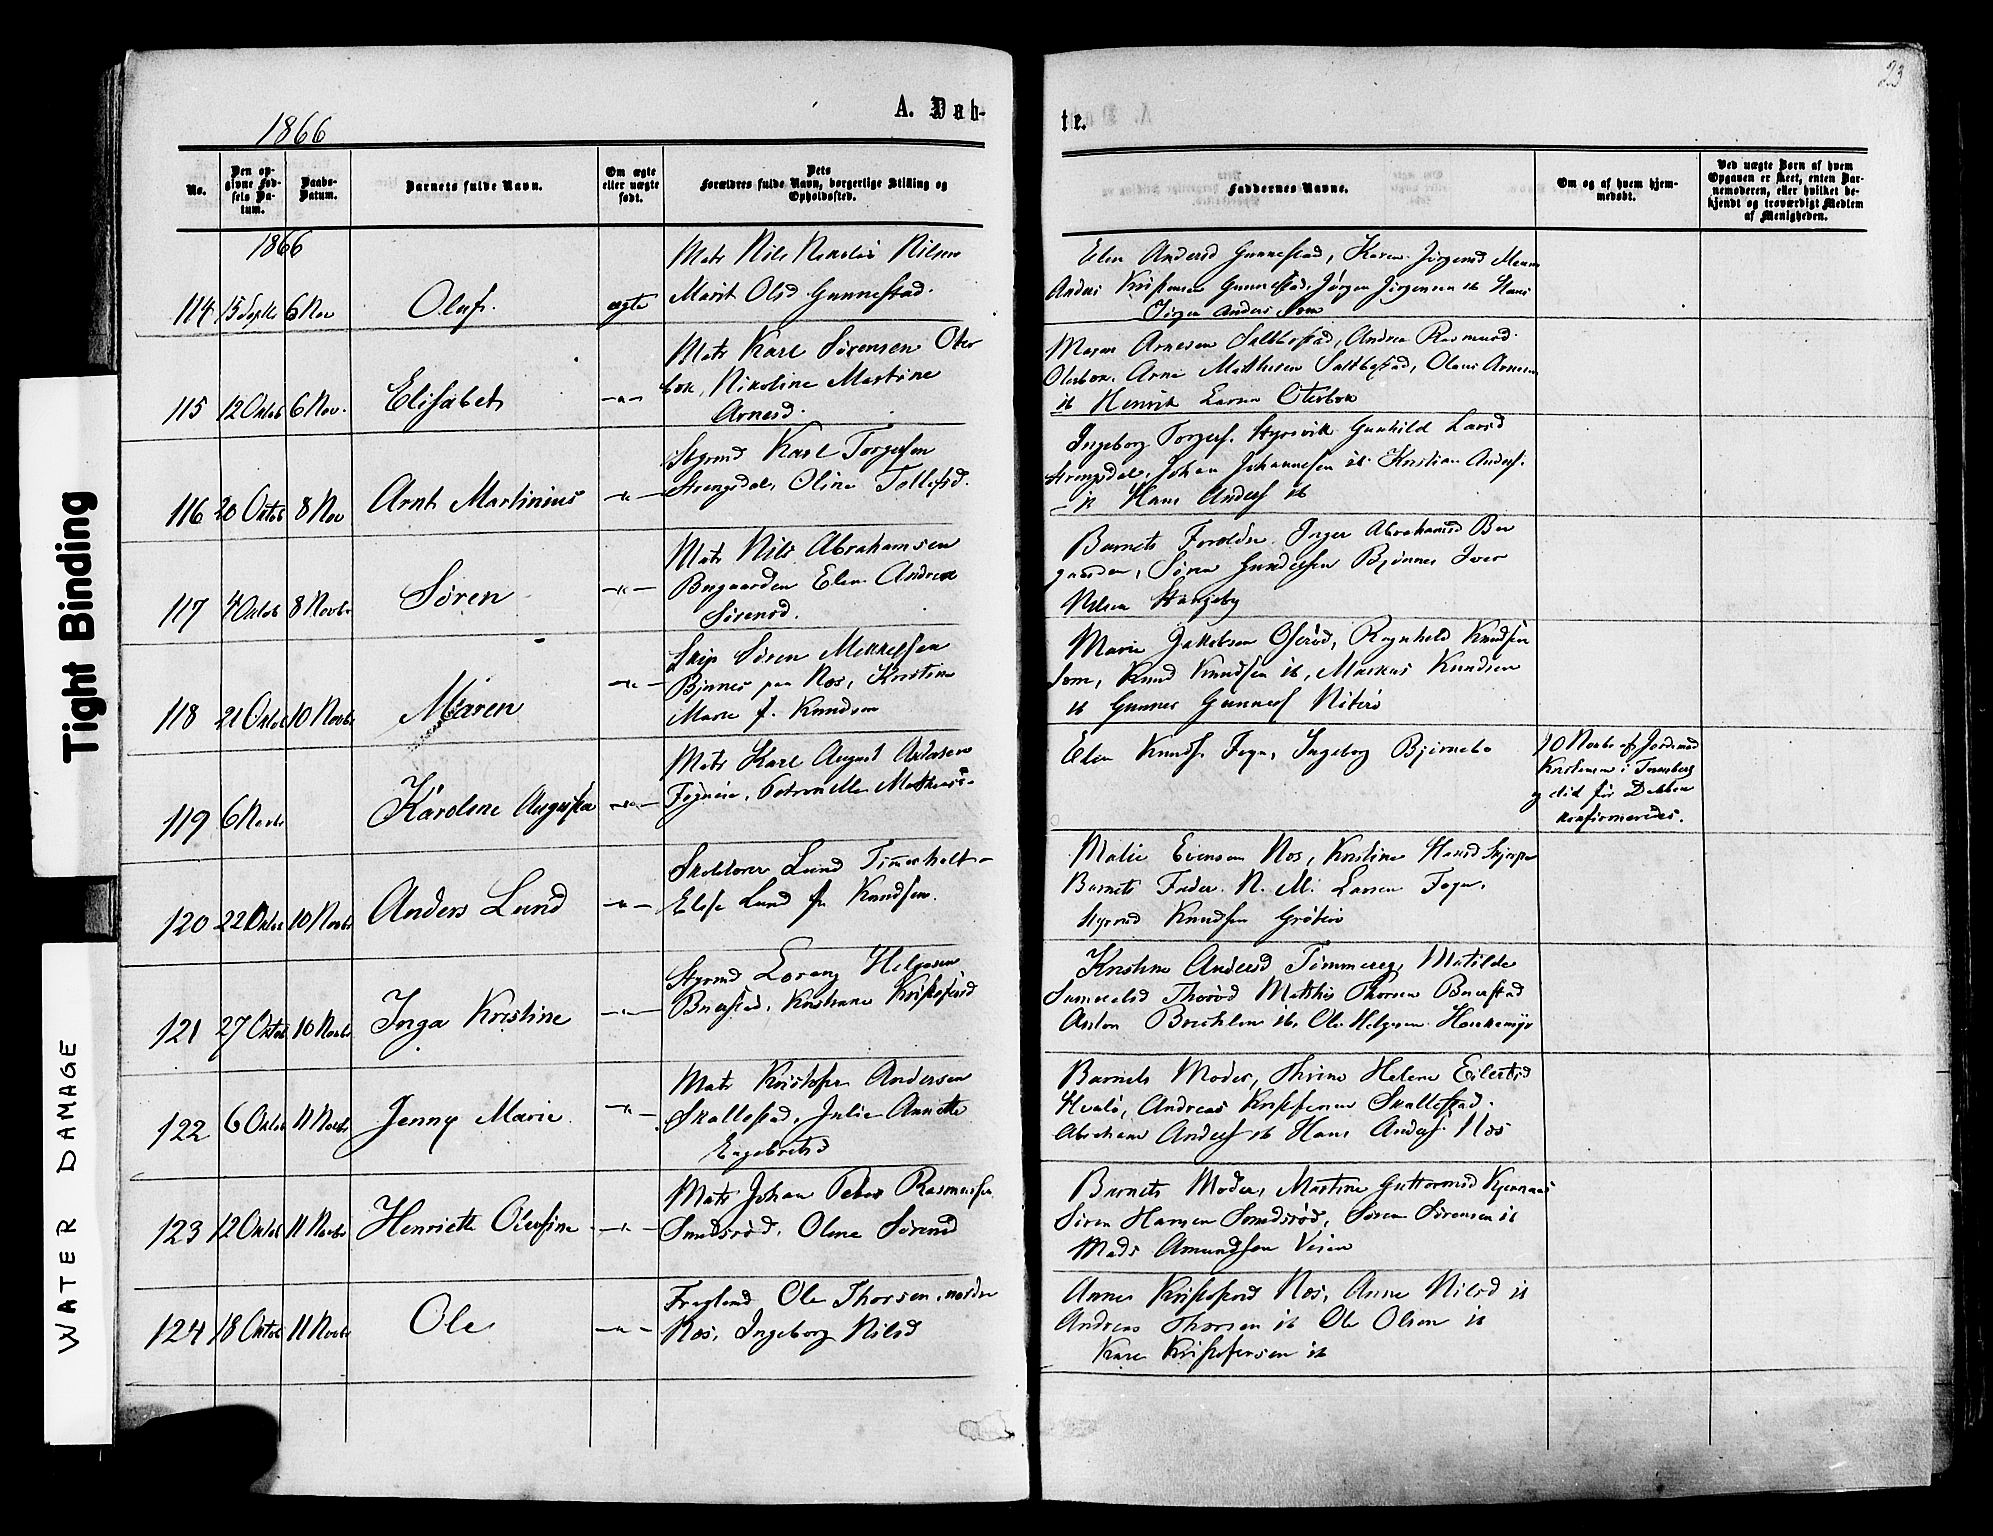 Tight Binding
WATER DAMAGE
23
1866
A. Døb-
te.
No.
Den op-
givne Fød-
sels Da-
tum.
Daabs-
Datum.
Barnets fulde Navn.
Om ægte
eller uægte
født.
Dets
Forældres fulde Navn, borgerlige Stilling og
Opholdssted.
Faddernes Navne.
Om og af hvem hjem-
medøbt.
Ved uægte Barn af hvem
Opgaven er skeet, enten Bar-
nemoderen, eller hvilket be-
kjendt og troværdigt Medlem
af Menigheden.
1866
114 15 Septb 6 Nov Oluf. ægte
Matr Nils Nilsen
Marit Olsd Gunnestad.
Elen Andersd Gunnestad, Karen Jørgensd
Anders Kristensen Gunnestad, Jørgen Jørgensen ib Hans
115 12 Oktob 6 Nov. Elisabet -"-
Matr Karl Sørensen Oter
bek, Nikoline Martine
Arnesd.
Maren Arnesen Saltbostad, Andrea Rasmusd
Oterbek. Arne Mathisen Saltbostad, Olaus Arnesen
ib Henrik Larsen Oterbek
116 20 Oktob 8 Nov Arnt Martinius -"-
Styrmd Karl Torgersen
Strengsdal, Oline Tollefsd.
Ingeborg Torgers. Gunhild Larsd
Strengsdal, Johan Johannesen ib. Kristian Anders.
ib Hans Anders ib
117 4 Oktob 8 Novbr Søren -"-
Matr Nils Abrahamsen
Buegaarden Elen Andrea
Sørensd.
Barnets Forældre, Inger Abrahamsd Bue
gaarden, Søren Gundersen Bjønnes Iver
Nilsen
118 21 Oktob 10 Novbr Maren -"-
Skip Søren Mikkelsen
Bjønnes paa Nøs, Kristine
Marie f. Knudsen
Marie Jakobsen Oserød, Ragnhild Knudsen
Sem, Knud Knudsen ib, Markus Knudsen
ib Gunner Gunners
119 6 Novbr Karoline Augusta -"-
Matr Karl August Andersen
Føgneie, Petronelle Mathisd.
Elen Knuds. Ingeborg Bjørnebo
10 Novbr af Jordemod
Kristensen i Tønsberg
og did før Daaben
konfirmeredes.
120 22 Oktbr 10 Novbr Anders Lund -"-
Lund Timerholt
Elise Lund f. Knudsen.
Malie Evensen Nøs, Kristine Hansd
Barnets Fader. N. M. Larsen
Styrmd Knudsen
121 27 Oktob 10 Novbr Inga Kristine -"-
Styrmd Lorang Helgesen
Buerstad, Kristiane Kristofersd
Kristine Andersd Tømmereg, Matilde
Samuelsd Thorød Mathis Thorsen Buerstad
Anton ib, Ole Helgesen
122 6 Oktob 11 Novbr Jenny Marie. -"-
Matr Kristofer Andersen
Skallestad, Julie Annette
Engebretsd
Barnets Moder, Helene Eilertsd
Hvalø, Andreas Kristofersen Skallestad.
Abraham Anders ib Hans Anders. Nøs
123 12 Oktob 11 Novbr Henriette Olufine -"-
Matr Johan Peter Rasmussen
Sundsrød, Oline Sørensd
Barnets Moder, Martine Guttormsd Kjønnøs
Søren Hansen Sundsrød, Søren Sørensen ib
Mads Amundsen Veien
124 18 Oktob 11 Novbr Ole -"-
Ole Thorsen, nordre
Nøs, Ingeborg Nilsd
Anne Kristofersd Nøs, Anne Nilsd ib
Andreas Thorsen ib Ole Olsen ib
Kare Kristofersen ib